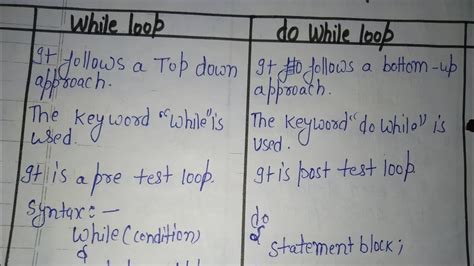 While loop
It follows a Top down
approach.
The keyword "while" is
used.
It is a pre test loop.
Syntax:-
While(condition)
{
do While loop
It follows a bottom-up
approach.
The keyword "do while" is
used.
It is post test loop.
do
{
statement block;